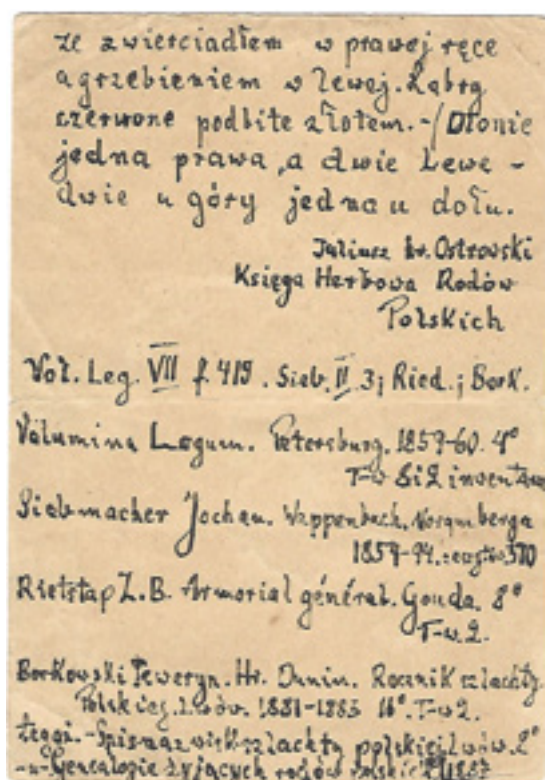 ze zwierciadłem w prawej ręce
a grzebieniem w lewej. Labry
czerwone podbite złotem. -/ Dłonie
jedna prawa, a dwie Lewe -
dwie u góry jedna u dołu.
Juliusz hr. Ostrowski
Księga Herbowa Rodów
Polskich
Vol. Leg. VII f. 419. Sieb. II 3; Ried.; Bork.
Volumina Legum. Petersburg. 1859-60. 4°
T-w 8 i 2 inwentarz
Siebmacher Jochan. Wappenbuch. Norymberga
1854-94.
Rietstap Z.B. Armorial général. Gouda 8°
T-w. 2.
Borkowski Seweryn. Hr. Dunin. Rocznik szlachty
Polskiej. Lwów. 1881-1883 16°. T-w 2.
Tegoż. - Spis nazwisk szlachty polskiej Lwów. 2°
-"- Genealogie żyjących rodów Polskich 1887